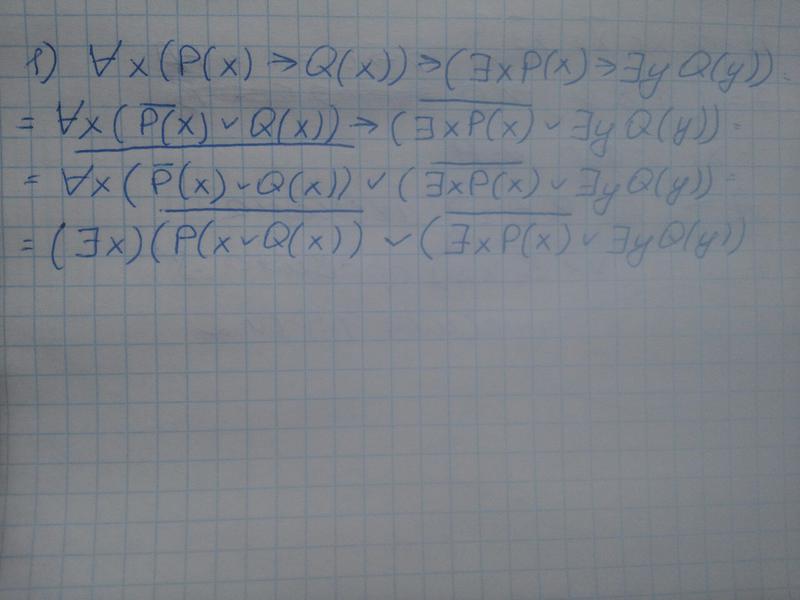 1) ∀x(P(x)→Q(x))→(∃xP(x)→∃yQ(y))=
= ∀x(P̅(x)∨Q(x))→(∃̅x̅P̅(̅x̅)̅∨∃yQ(y))=
= ∀̅x̅(̅P̅(̅x̅)̅∨̅Q̅(̅x̅)̅)̅∨(∃̅x̅P̅(̅x̅)̅∨∃yQ(y))=
= (∃x)(P̅(̅x̅∨̅Q̅(̅x̅)̅)∨(∃̅x̅P̅(̅x̅)̅∨∃yQ(y))